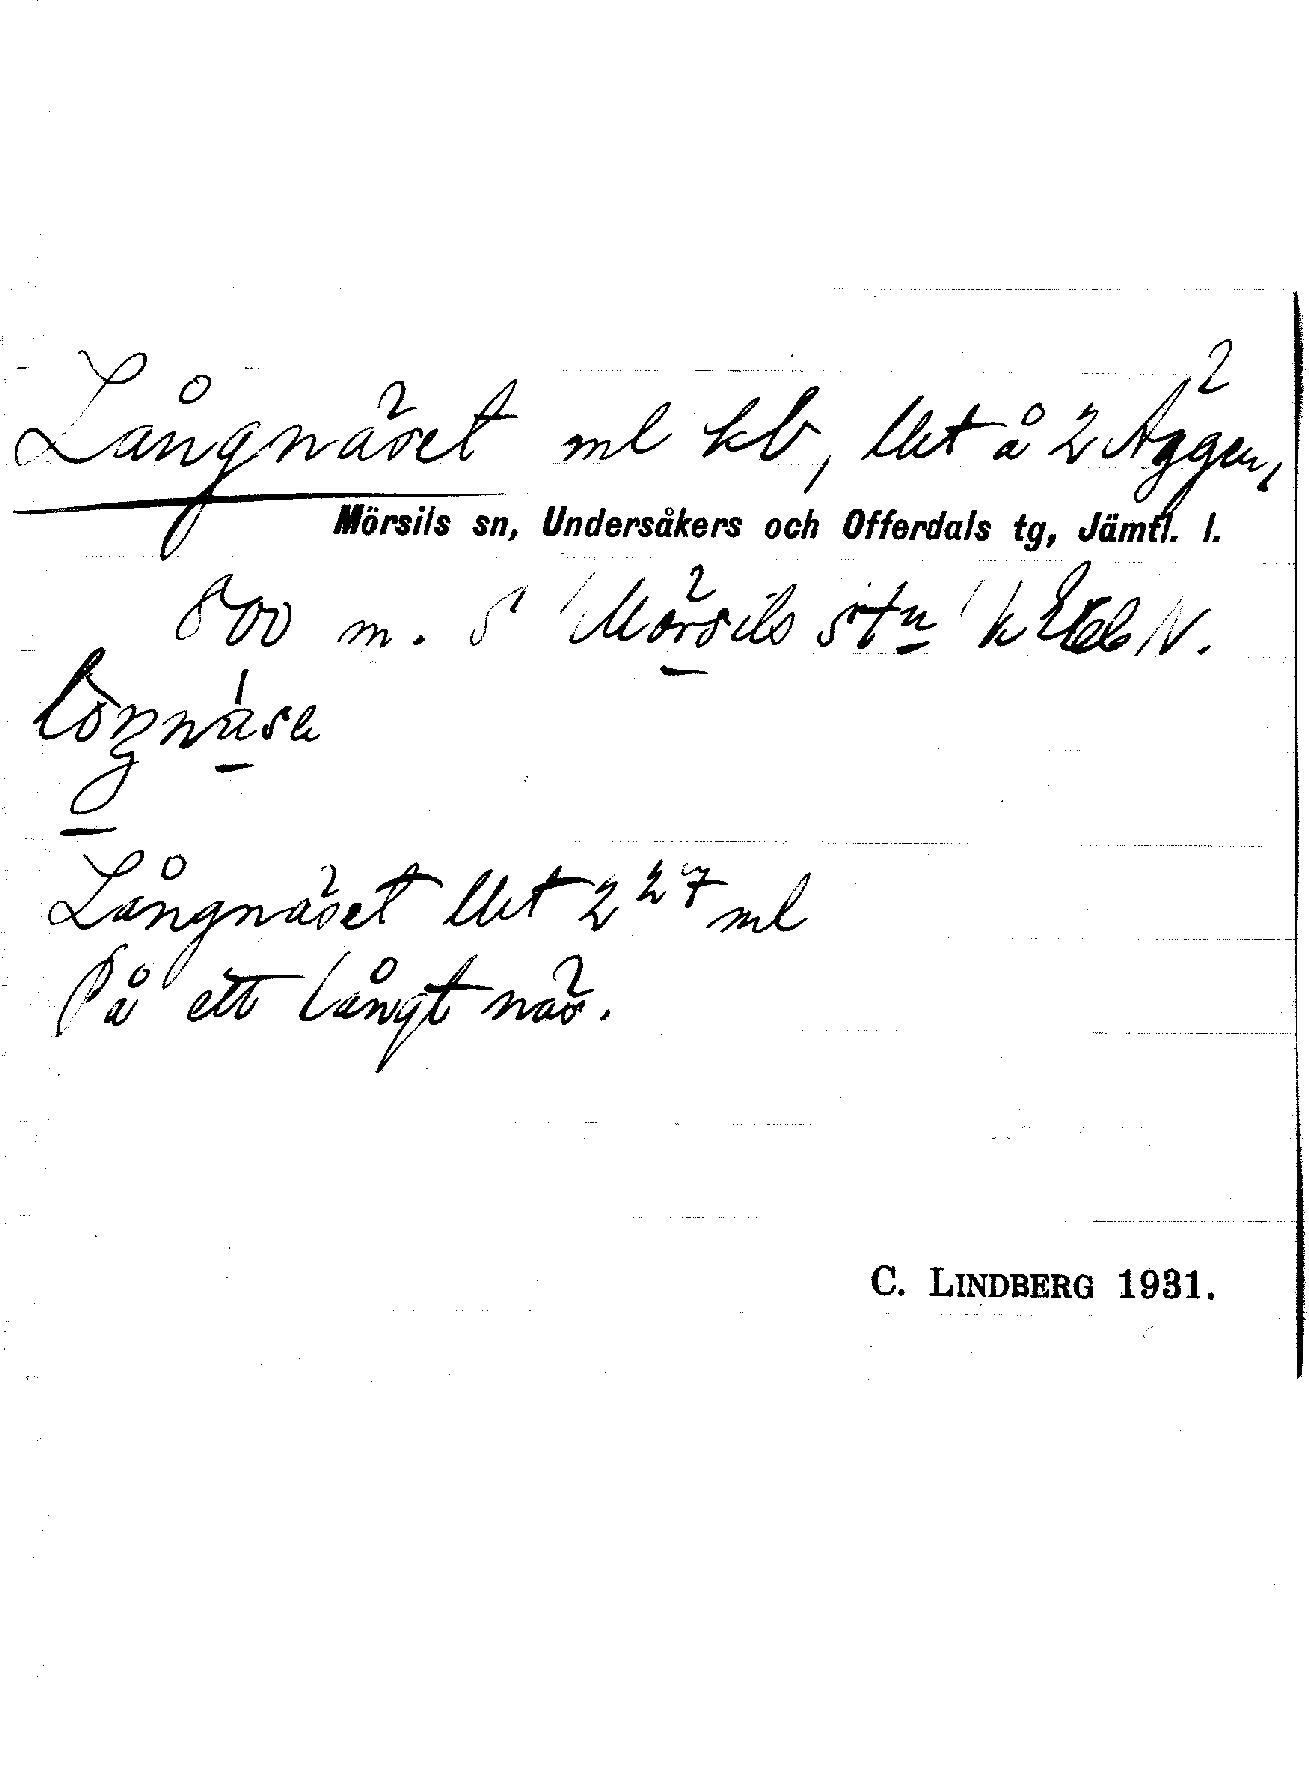 Långnäset ml kb, lht å 2 Äggen,
Mörsils sn, Undersåkers och Offerdals tg, Jämtl. l.
800 m. S Mörsils stn k N.
Långnäset lht 2 27 ml
På ett långt näs.
C. LINDBERG 1931.